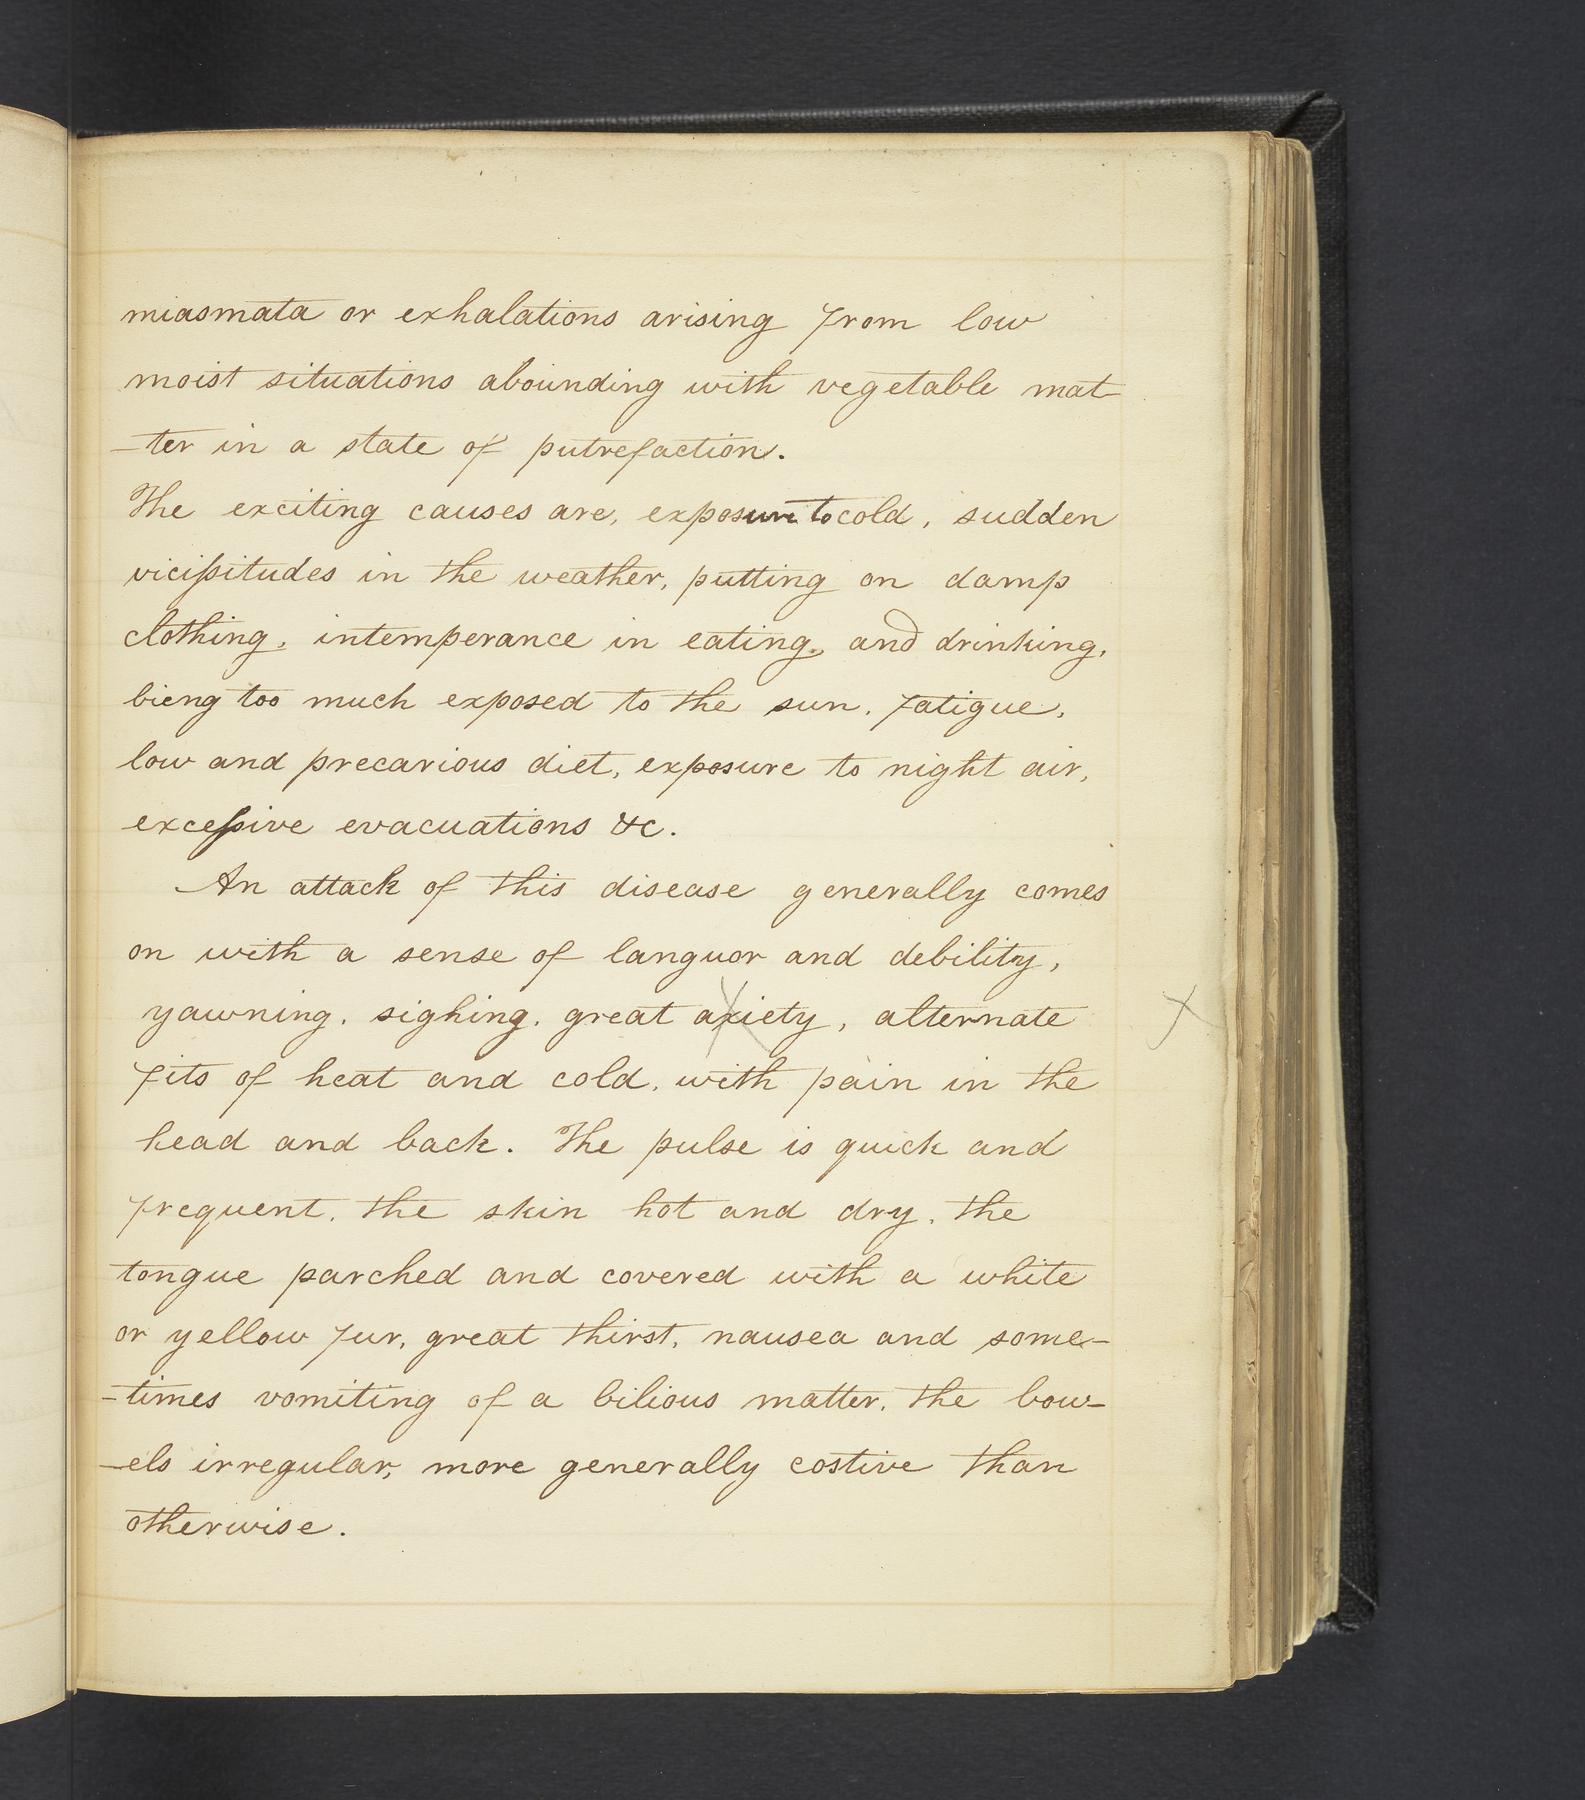 miasmata or exhalations arising from low
moist situations abounding with vegetable mat
-ter in a state of putrefaction.
The exciting causes are, exposure to cold, sudden
vicissitudes in the weather, putting on damp
clothing, intemperance in eating, and drinking,
bieng too much exposed to the sun, fatigue,
low and precarious diet, exposure to night air,
excessive evacuations &c.
An attack of this disease generally comes
on with a sense of languor and debility,
yawning, sighing, great axiety, alternate
fits of heat and cold, with pain in the
head and back. The pulse is quick and
frequent, the skin hot and dry, the
tongue parched and covered with a white
or yellow fur, great thirst, nausea and some-
-times vomiting of a bilious matter, the bow-
-els irregular, more generally costive than
otherwise.